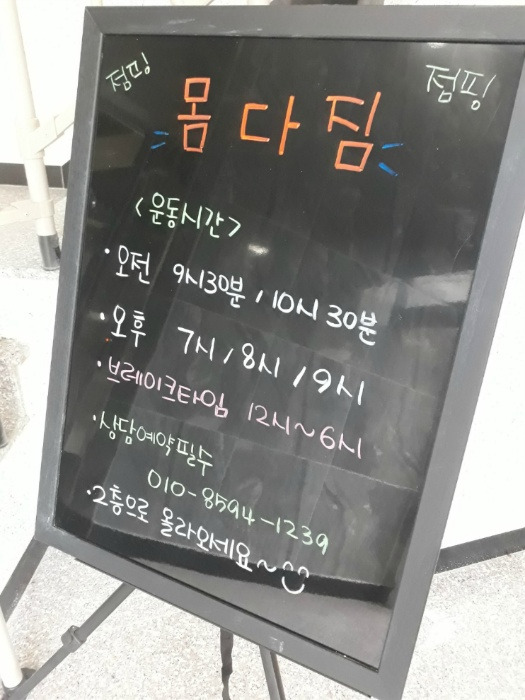 점핑 점핑
몸다짐
<운동시간>
·오전 9시30분, 10시 30분
·오후 7시, 8시, 9시
·브레이크타임 12시~6시
·상담예약필수
010-8594-1239
·2층으로 올라와세요~